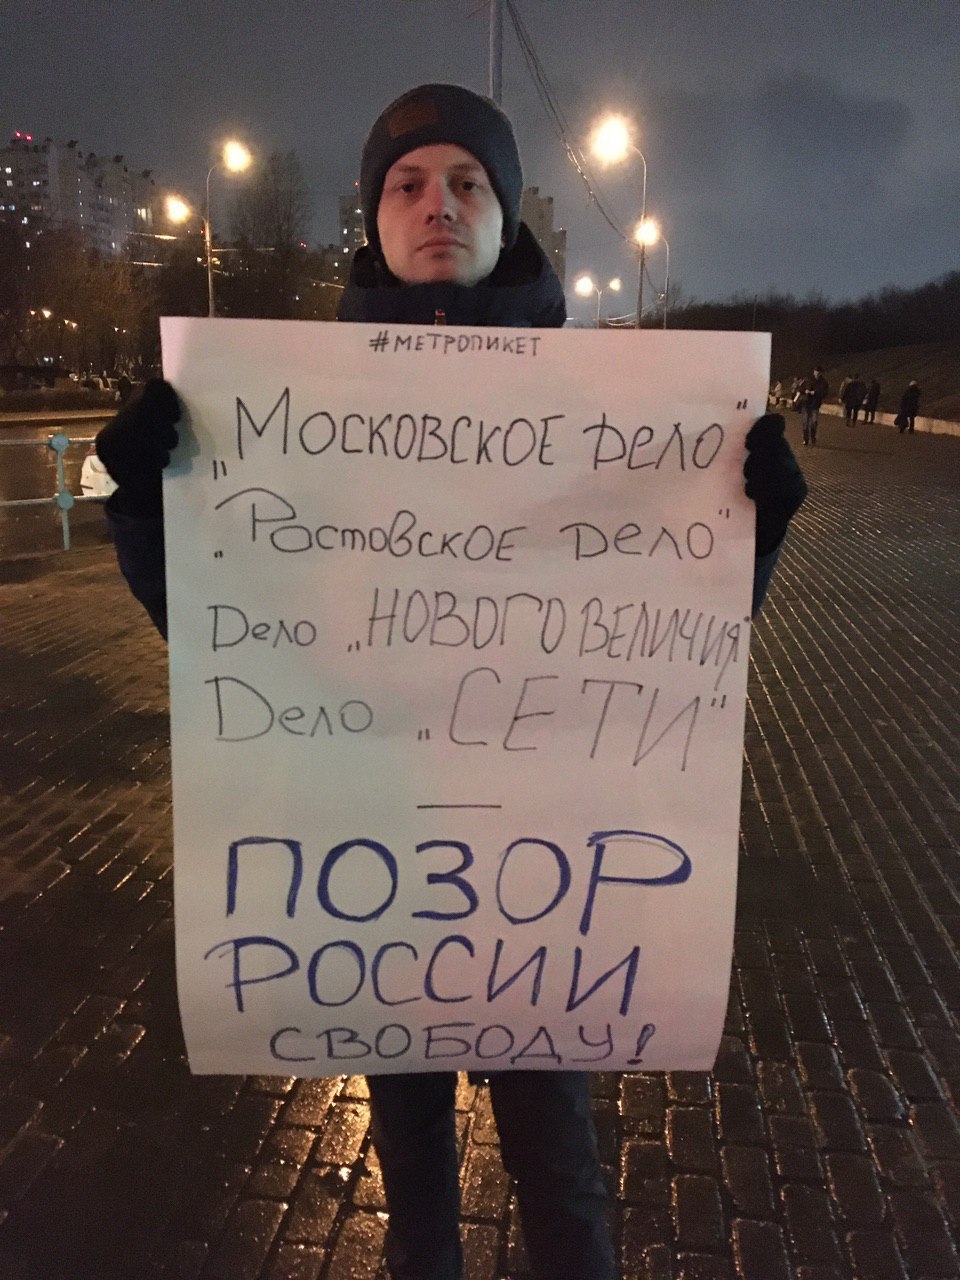 #МЕТРОПИКЕТ
„МОСКОВСКОЕ ДЕЛО"
„Ростовское дело"
Дело „НОВОГО ВЕЛИЧИЯ"
Дело „СЕТИ"
—
ПОЗОР
РОССИИ
СВОБОДУ!